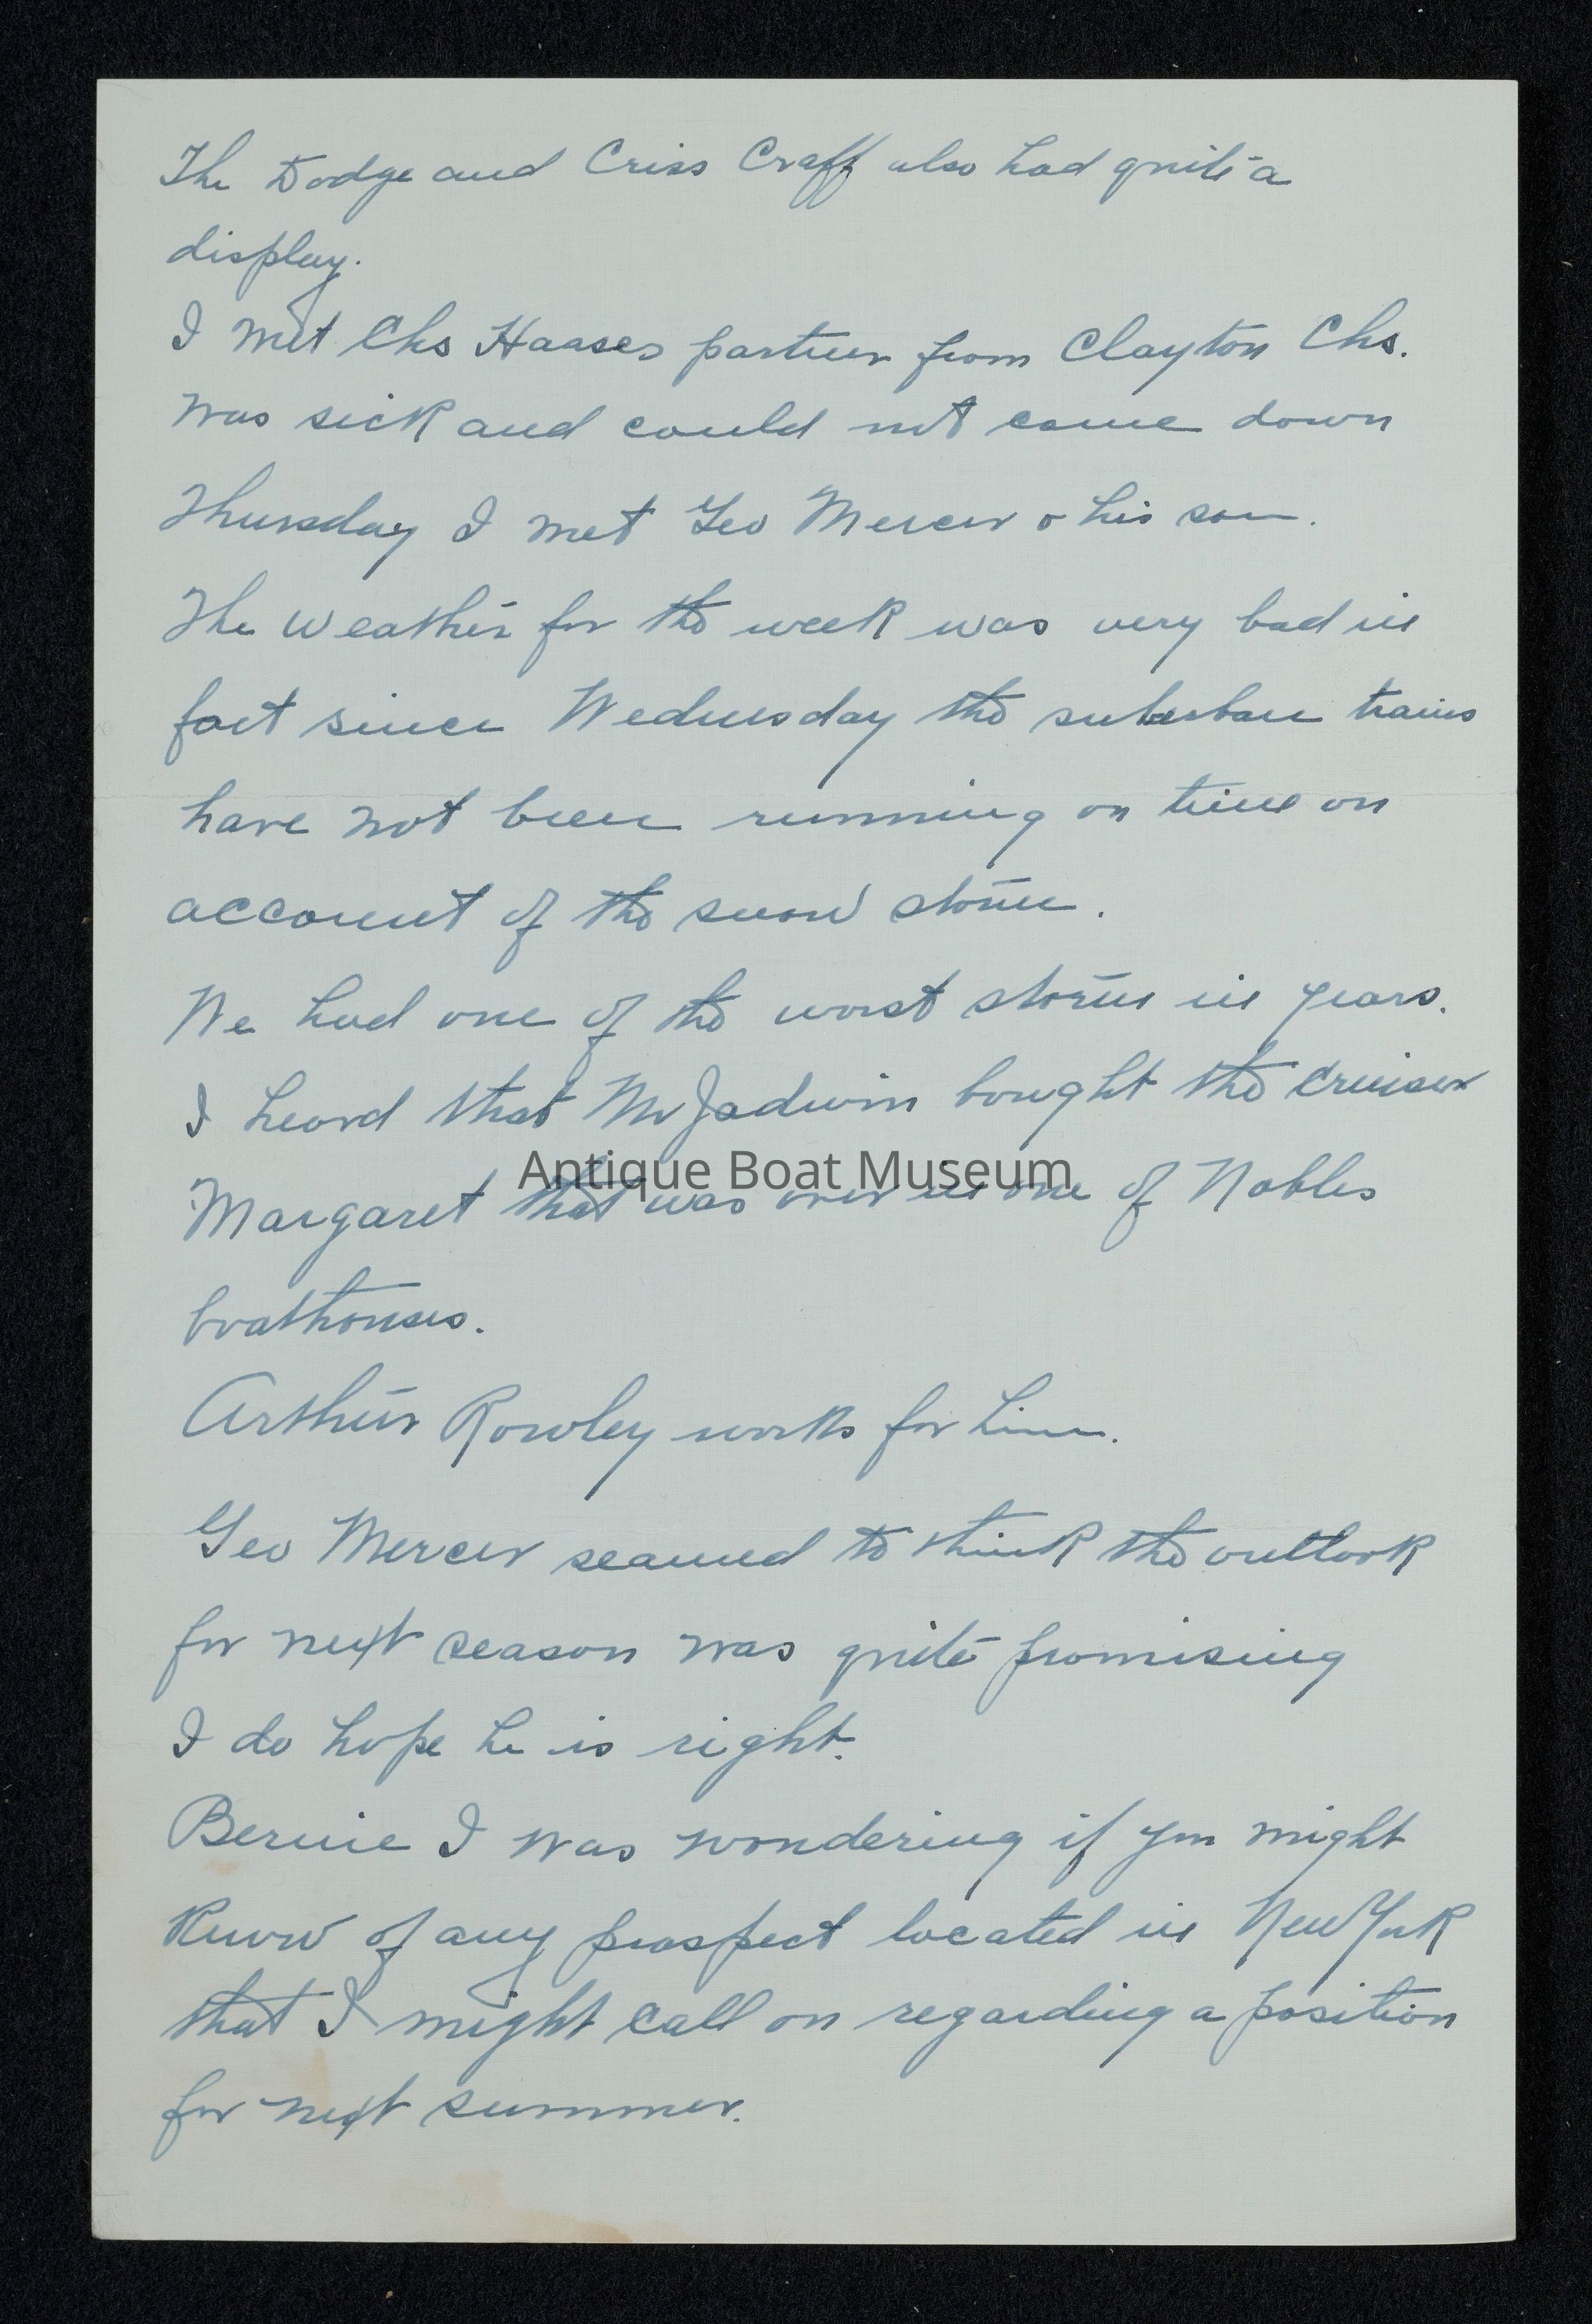 The Dodge and Criss Craff also had quite a
display.
I met Chs Haases partner from Clayton Chs.
was sick and could not come down
Thursday I met Geo Mercer & his son.
The weather for the week was very bad in
fact since Wednesday the suburban trains
have not been running on time on
account of the snow storm.
We had one of the worst storms in years.
I heard that Mr Jadwin bought the cruiser
Antique Boat Museum
Margaret that was over in one of Nobles
boathouses.
Arthur Rowley works for him.
Geo Mercer seamed to think the outlook
for next season was quite promising
I do hope he is right.
Bernie I was wondering if you might
know of any prospect located in New York
that I might call on regarding a position
for next summer.